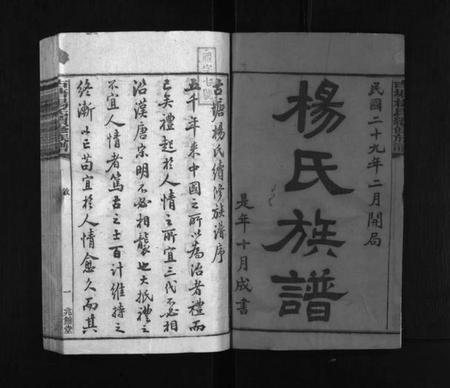 民國二十九年二月開局
楊氏族譜
是年十月成書
古塘楊氏續修族譜序
五千年來中國之所以為治者禮而
已矣禮起於人情之所宜三代不必相
沿漢唐宋明不必相襲也大抵禮之
不宜人情者篤古之士百計維持之
終漸以亡苟宜於人情愈久而其
敘
一